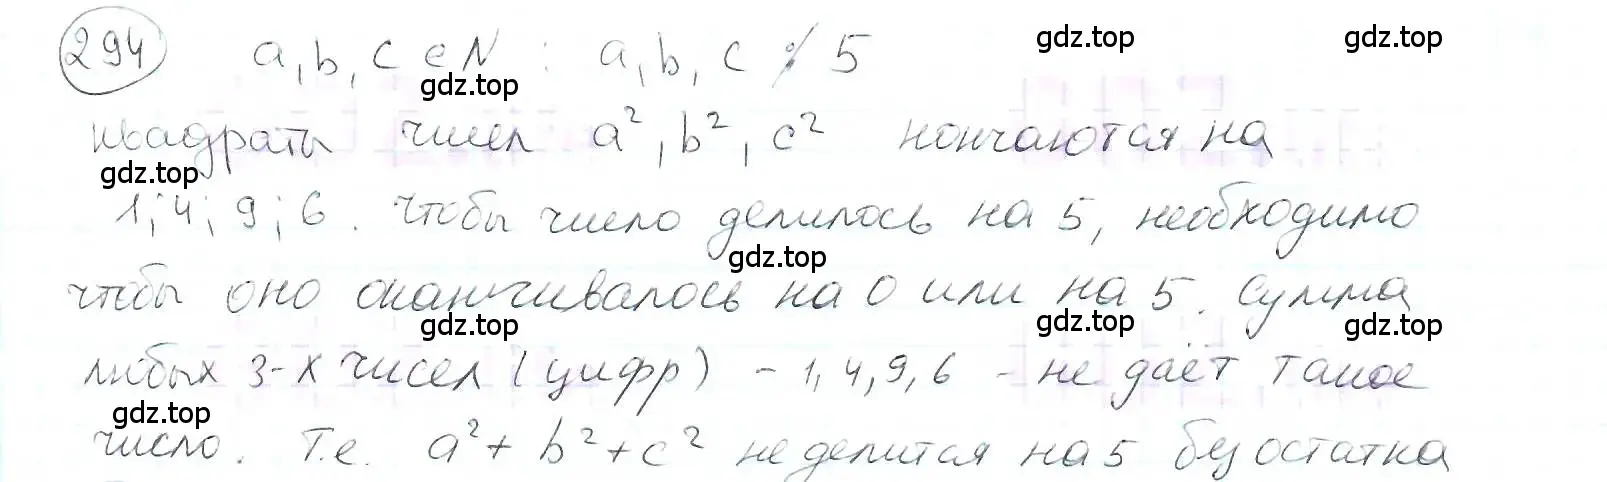 294 a, b, c ∈ N : a, b, c ⋮̸ 5
gdz.top gdz.top gdz.top
квадраты чисел a², b², c² кончаются на
gdz.top
1; 4; 9; 6. Чтобы число делилось на 5, необходимо
gdz.top
чтобы оно оканчивалось на 0 или на 5. Сумма
gdz.top gdz.top gdz.top
любых 3-х чисел (цифр) - 1, 4, 9, 6 - не даёт такое
gdz.top
число. Т.е. a² + b² + c² не делится на 5 без остатка